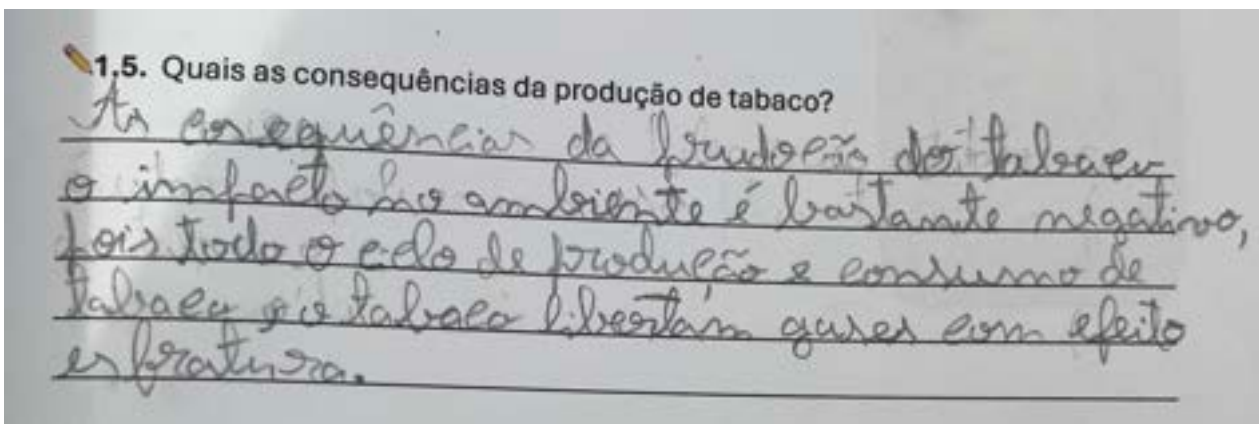 1.5. Quais as consequências da produção de tabaco?
As consequências da prudoção do tabaco
o impacto no ambiente é bastante negativo,
pois todo o ciclo de produção e consumo de
tabaco o tabaco libertam gases com efeito
esfratura.